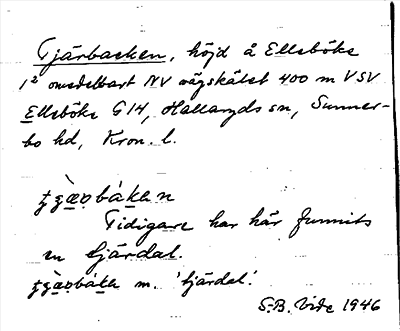 Tjärbacken, höjd å Elleböke
1² omedelbart NV vägskälet 400 m VSV
Elleböke G14, Hallaryds sn, Sunner-
bo hd, Kron. l.
Tidigare har här funnits
en tjärdal.
m. 'tjärdal'.
S.-B. Vide 1946